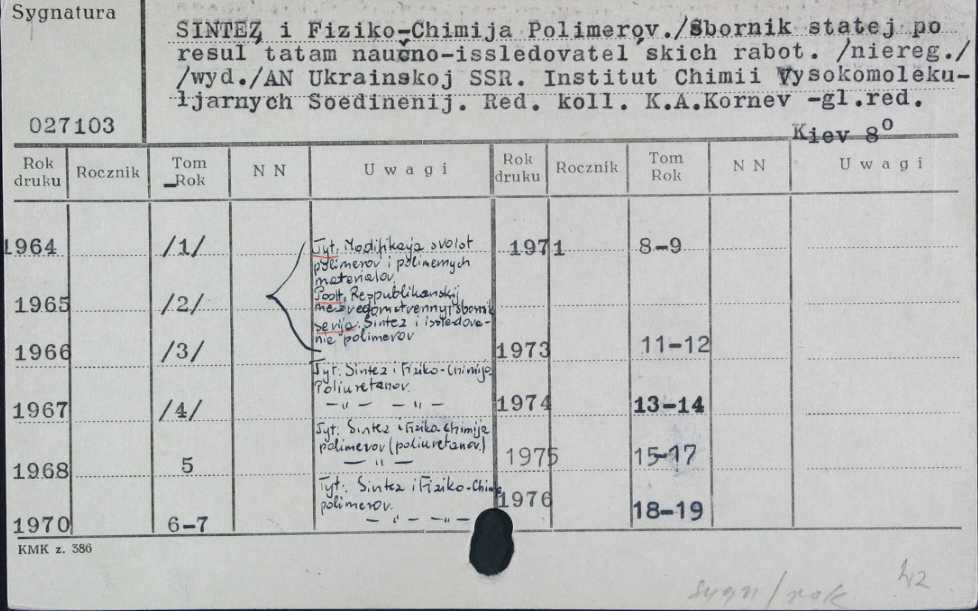 Sygnatura
SINTEZ i Fiziko-Chimija Polimerov./Sbornik statej po
resul tatam naučno-issledovatel´skich rabot. /niereg./
/wyd./AN Ukrainskoj SSR. Institut Chimii Vysokomoleku-
ljarnych Soedinenij. Red. koll. K.A.Kornev -gl.red.
027103
Kiev 8º
Rok druku Rocznik Tom Rok N N U w a g i Rok druku Rocznik Tom Rok N N U w a g i
1964 /1/ Tyt. Modifikaja svolst 1971 8-9
polimerov i polimernych
materialov
Podt. Respublikanskij
1965 /2/ mezvedomstvennyj sbornik
serija: Sintez i issledova-
nie polimerov
1966 /3/ 1973 11-12
Tyt. Sintez i Fiziko-Chimija
Poliuretanov.
1967 /4/ — „ — — „ — 1974 13-14
Tyt. Sintez i Fizika Chimija
polimerov (poliuretanov)
1968 5 — „ — 1975 15-17
Tyt. Sintez i Fiziko-Chimi
polimerov. 1976 18-19
1970 6-7 — „ — „ —
KMK z. 386
sygn / rok